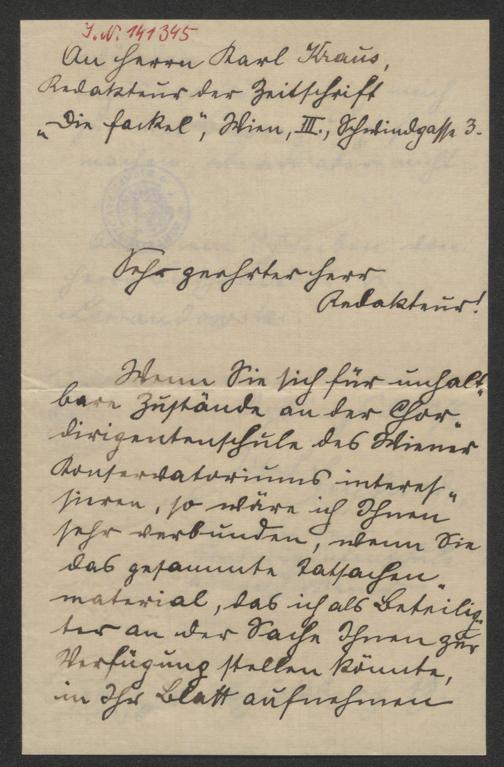 J. N. 141345
An Herrn Karl Kraus,
Redakteur der Zeitschrift
„Die Fackel“, Wien, III., Schwindgasse 3.
Sehr geehrter Herr
Redakteur!
Wenn Sie sich für unhalt„
bare Zustände an der Chor„
dirigentenschule des Wiener
Konservatoriums interes„
sieren, so wäre ich Ihnen
sehr verbunden, wenn Sie
das gesammte Tatsachen„
material, das ich als Beteilig„
ter an der Sache Ihnen zur
Verfügung stellen könnte,
in Ihr Blatt aufnehmen